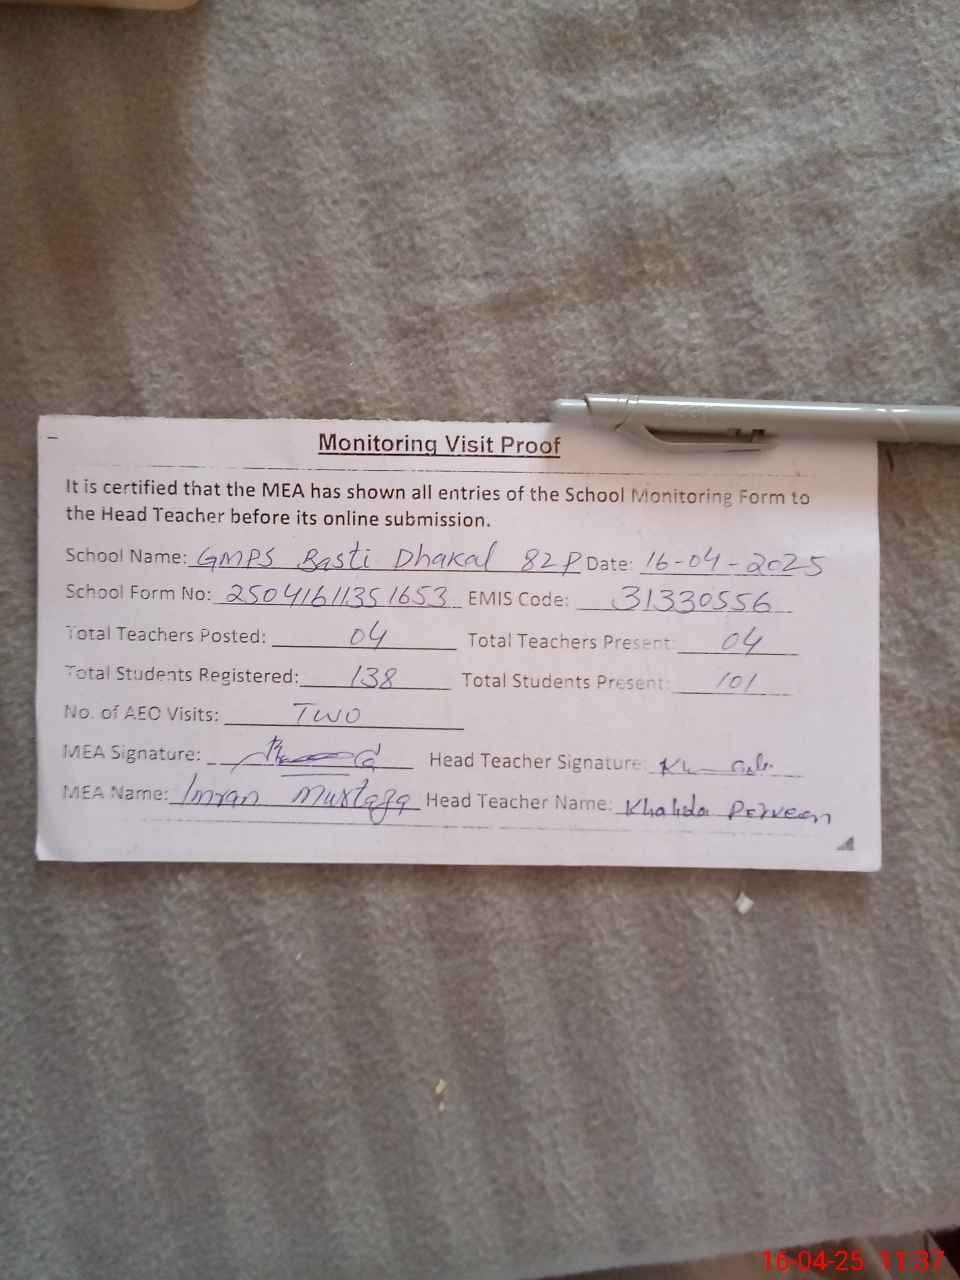 Monitoring Visit Proof
It is certified that the MEA has shown all entries of the School Monitoring Form to
the Head Teacher before its online submission.
School Name: GMPS Basti Dhakal 82P Date: 16-04-2025
School Form No: 2504161135 1653 EMIS Code: 31330556
Total Teachers Posted: 04 Total Teachers Present: 04
Total Students Registered: 138 Total Students Present: 101
No. of AEO Visits: TWO
MEA Signature: Head Teacher Signature:
MEA Name: Imran Mustafa Head Teacher Name: Khalida Perveen
16-04-25 11:37